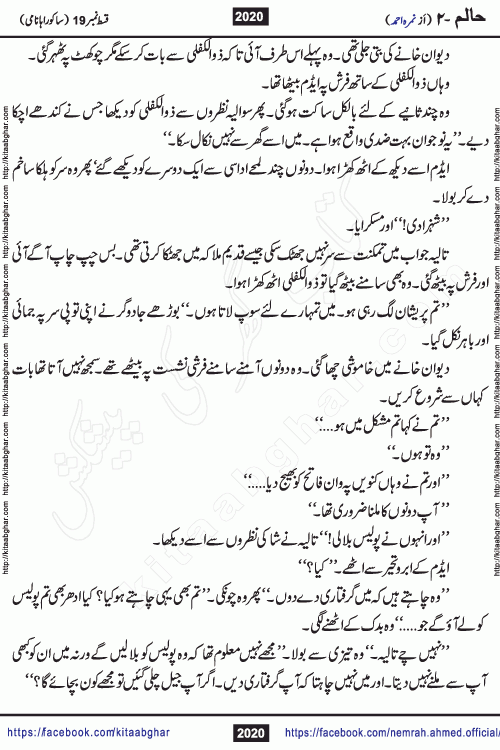 حالم -۲ (از نمره احمد) 2020 قسط نمبر 19 (ساکورا ہانامی)
دیوان خانے کی بتی جلی تھی۔ وہ پہلے اس طرف آئی تاکہ ذوالکفلی سے بات کر سکے مگر چوکھٹ پہ ٹھہر گئی۔
وہاں ذوالکفلی کے ساتھ فرش پہ ایڈم بیٹھا تھا۔
وہ چند ثانیے کے لئے بالکل ساکت ہو گئی۔ پھر سوالیہ نظروں سے ذوالکفلی کو دیکھا جس نے کندھے اچکا
دیے۔ ’’یہ نوجوان بہت ضدی واقع ہوا ہے۔ میں اسے گھر سے نہیں نکال سکا۔‘‘
ایڈم اسے دیکھ کے اٹھ کھڑا ہوا۔ دونوں چند لمحے اداسی سے ایک دوسرے کو دیکھے گئے پھر وہ سر کو ہلکا سا خم
دے کر بولا۔
’’شہزادی!‘‘ اور مسکرایا۔
تالیہ جواب میں تمکنت سے سر نہیں جھٹک سکی جیسے قدیم ملاکہ میں جھٹکا کرتی تھی۔ بس چپ چاپ آگے آئی
اور فرش پہ بیٹھ گئی۔ وہ بھی سامنے بیٹھ گیا تو ذوالکفلی اٹھ کھڑا ہوا۔
’’تم پریشان لگ رہی ہو۔ میں تمہارے لئے سوپ لاتا ہوں۔‘‘ بوڑھے جادوگر نے اپنی ٹوپی سر پہ جمائی
اور باہر نکل گیا۔
دیوان خانے میں خاموشی چھا گئی۔ وہ دونوں آمنے سامنے فرشی نشست پہ بیٹھے تھے۔ سمجھ نہیں آتا تھا بات
کہاں سے شروع کریں۔
’’تم نے کہا تم مشکل میں ہو....‘‘
’’وہ تو ہوں۔‘‘
’’اور تم نے وہاں کنویں پہ وان فاتح کو بھیج دیا.....‘‘
’’آپ دونوں کا ملنا ضروری تھا۔‘‘
’’اور انہوں نے پولیس بلا لی!‘‘ تالیہ نے شاکی نظروں سے اسے دیکھا۔
ایڈم کے ابرو تحیر سے اٹھے۔ ’’کیا؟‘‘
’’وہ چاہتے ہیں کہ میں گرفتاری دے دوں۔‘‘ پھر وہ چونکی۔ ’’تم بھی یہی چاہتے ہو کیا؟ کیا ادھر بھی تم پولیس
کو لے آؤ گے جو.....‘‘ وہ بدک کے اٹھنے لگی۔
’’نہیں چے تالیہ۔‘‘ وہ تیزی سے بولا۔ ’’مجھے نہیں معلوم تھا کہ وہ پولیس کو بلا لیں گے ورنہ میں ان کو کبھی
آپ سے ملنے نہیں دیتا۔ اور میں نہیں چاہتا کہ آپ گرفتاری دیں۔ اگر آپ جیل چلی گئیں تو مجھے کون بچائے گا؟‘‘
https://facebook.com/kitaabghar 2020 https://facebook.com/nemrah.ahmed.official/
http://kitaabghar.com http://kitaabghar.com http://kitaabghar.com http://kitaabghar.com
kitaabghar.com
کتاب گھر کی پیشکش